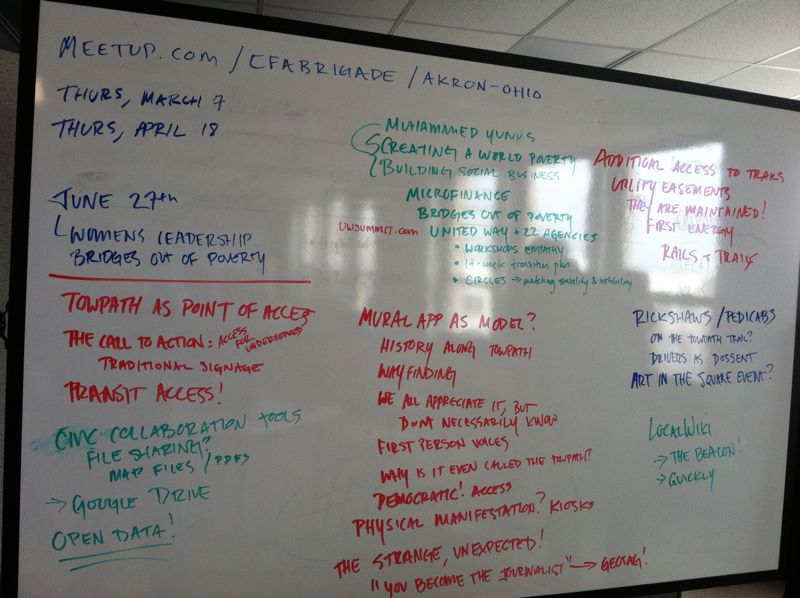 MEETUP.COM / CFABRIGADE / AKRON-OHIO
THURS, MARCH 7
THURS, APRIL 18
JUNE 27TH
WOMENS LEADERSHIP
BRIDGES OUT OF POVERTY
MUHAMMED YUNUS
CREATING A WORLD POVERTY
BUILDING SOCIAL BUSINESS
MICROFINANCE
BRIDGES OUT OF POVERTY
UWSUMMIT.com UNITED WAY + 22 AGENCIES
• WORKSHOPS EMPATHY
• 14-week transition plan
• CIRCLES → matching stability & instability
ADDITIONAL ACCESS TO TRAILS
UTILITY EASEMENTS
THEY ARE MAINTAINED!
FIRST ENERGY
RAILS + TRAILS
TOWPATH AS POINT OF ACCESS
THE CALL TO ACTION: ACCESS FOR UNDERSERVED
TRADITIONAL SIGNAGE
TRANSIT ACCESS!
CIVIC COLLABORATION TOOLS
FILE SHARING?
MAP FILES / PDFS
→ GOOGLE DRIVE
OPEN DATA!
MURAL APP AS MODEL?
HISTORY ALONG TOWPATH
WAYFINDING
WE ALL APPRECIATE IT, BUT
DONT NECESSARILY KNOW
FIRST PERSON VOICES
WHY IS IT EVEN CALLED THE TOWPATH?
DEMOCRATIC! ACCESS
PHYSICAL MANIFESTATION? KIOSKS
THE STRANGE, UNEXPECTED!
"YOU BECOME THE JOURNALIST" → GEOTAG!
RICKSHAWS / PEDICABS
ON THE TOWPATH TRAIL?
DRIVERS AS DOSSENT
ART IN THE SQUARE EVENT?
LOCALWIKI
→ THE BEACON!
→ QUICKLY